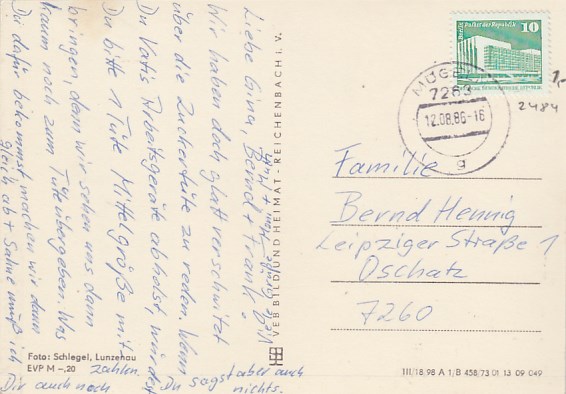 Liebe Gina, Bernd + Frank!
Wir haben doch glatt verschwitzt
über die Zuckertüte zu reden. Wenn
Du Vatis Arbeitsgeräte abholst, würdest
Du bitte 1 Tüte Mittelgröße mit-
bringen, denn wir sehen uns dann
kaum noch zum Tütenübergeben. Was
Du dafür bekommst machen wir dann
gleich ab + Sahne muß ich
Dir auch noch
zahlen.
Du sagst aber auch
nichts.
Foto: Schlegel, Lunzenau
EVP M –,20
VEB BILD UND HEIMAT · REICHENBACH i. V.
Berlin Palast der Republik
10
DEUTSCHE DEMOKRATISCHE REPUBLIK
7263
12.08.86-16
g
1,-
2484
Familie
Bernd Hennig
Leipziger Straße 1
Oschatz
7260
III/18 98 A 1/B 458/73 01 13 09 049